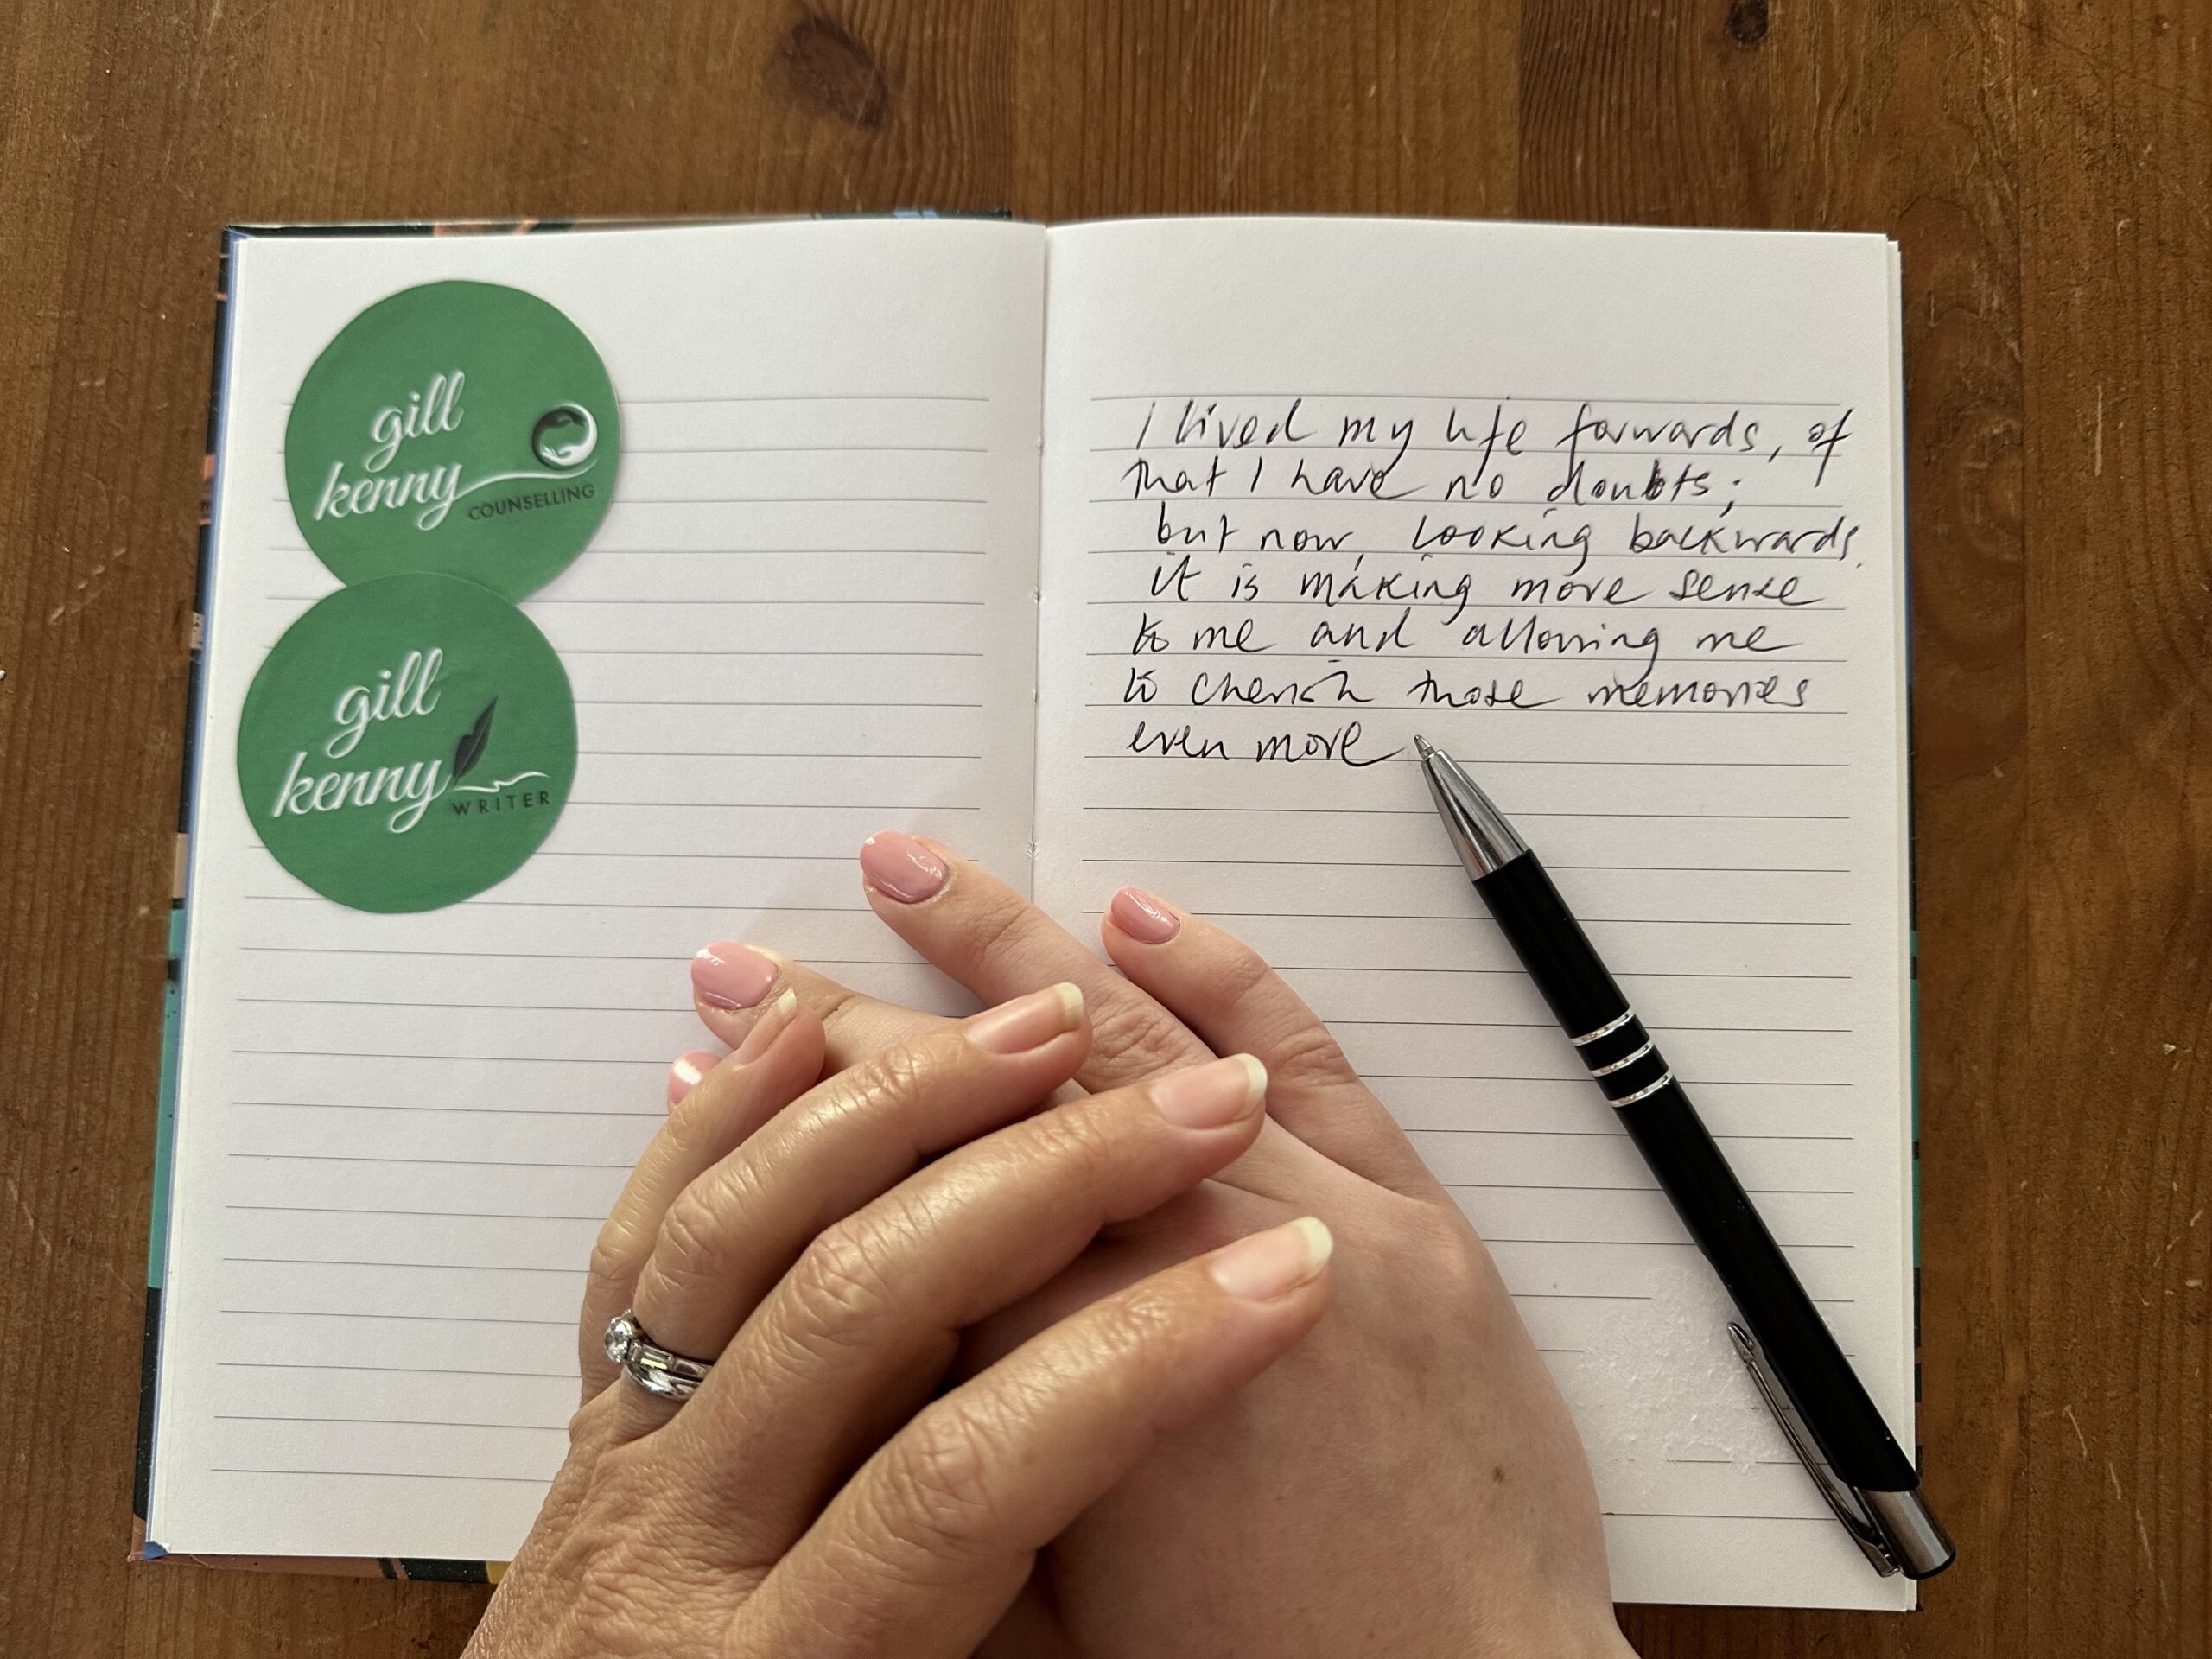 gill
kenny
COUNSELLING
gill
kenny
WRITER
I lived my life forwards, of
that I have no doubts;
but now, looking backwards,
it is making more sense
to me and allowing me
to cherish those memories
even more